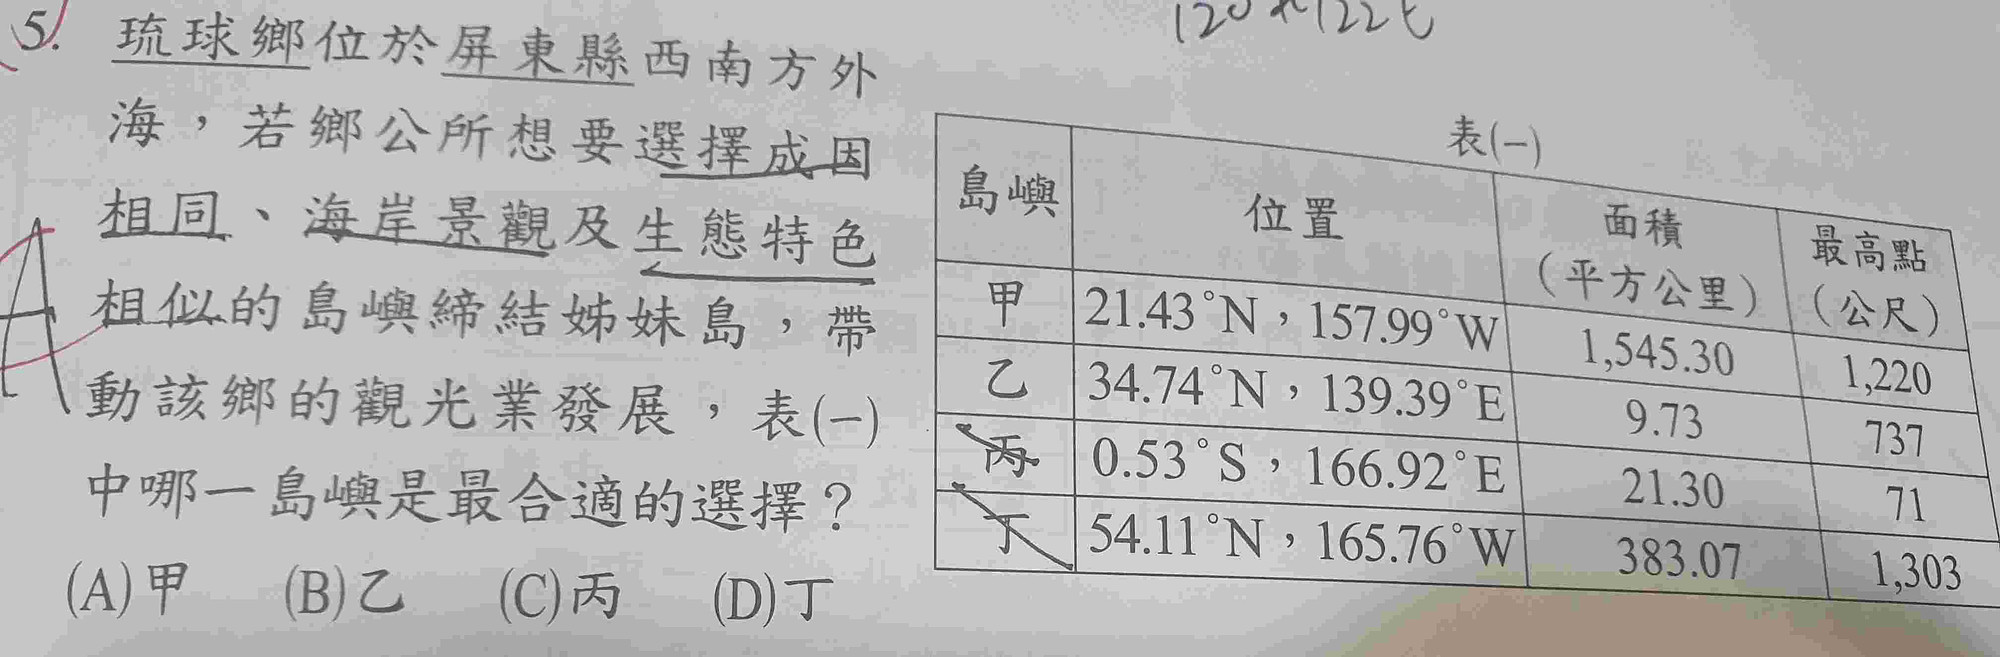 120 122E
5. 琉球鄉位於屏東縣西南方外
海，若鄉公所想要選擇成因
相同、海岸景觀及生態特色
相似的島嶼締結姊妹島，帶
動該鄉的觀光業發展，表(一)
中哪一島嶼是最合適的選擇？
(A)甲 (B)乙 (C)丙 (D)丁
A
表(一)
島嶼 位置 面積（平方公里） 最高點（公尺）
甲 21.43°N，157.99°W 1,545.30 1,220
乙 34.74°N，139.39°E 9.73 737
丙 0.53°S，166.92°E 21.30 71
丁 54.11°N，165.76°W 383.07 1,303